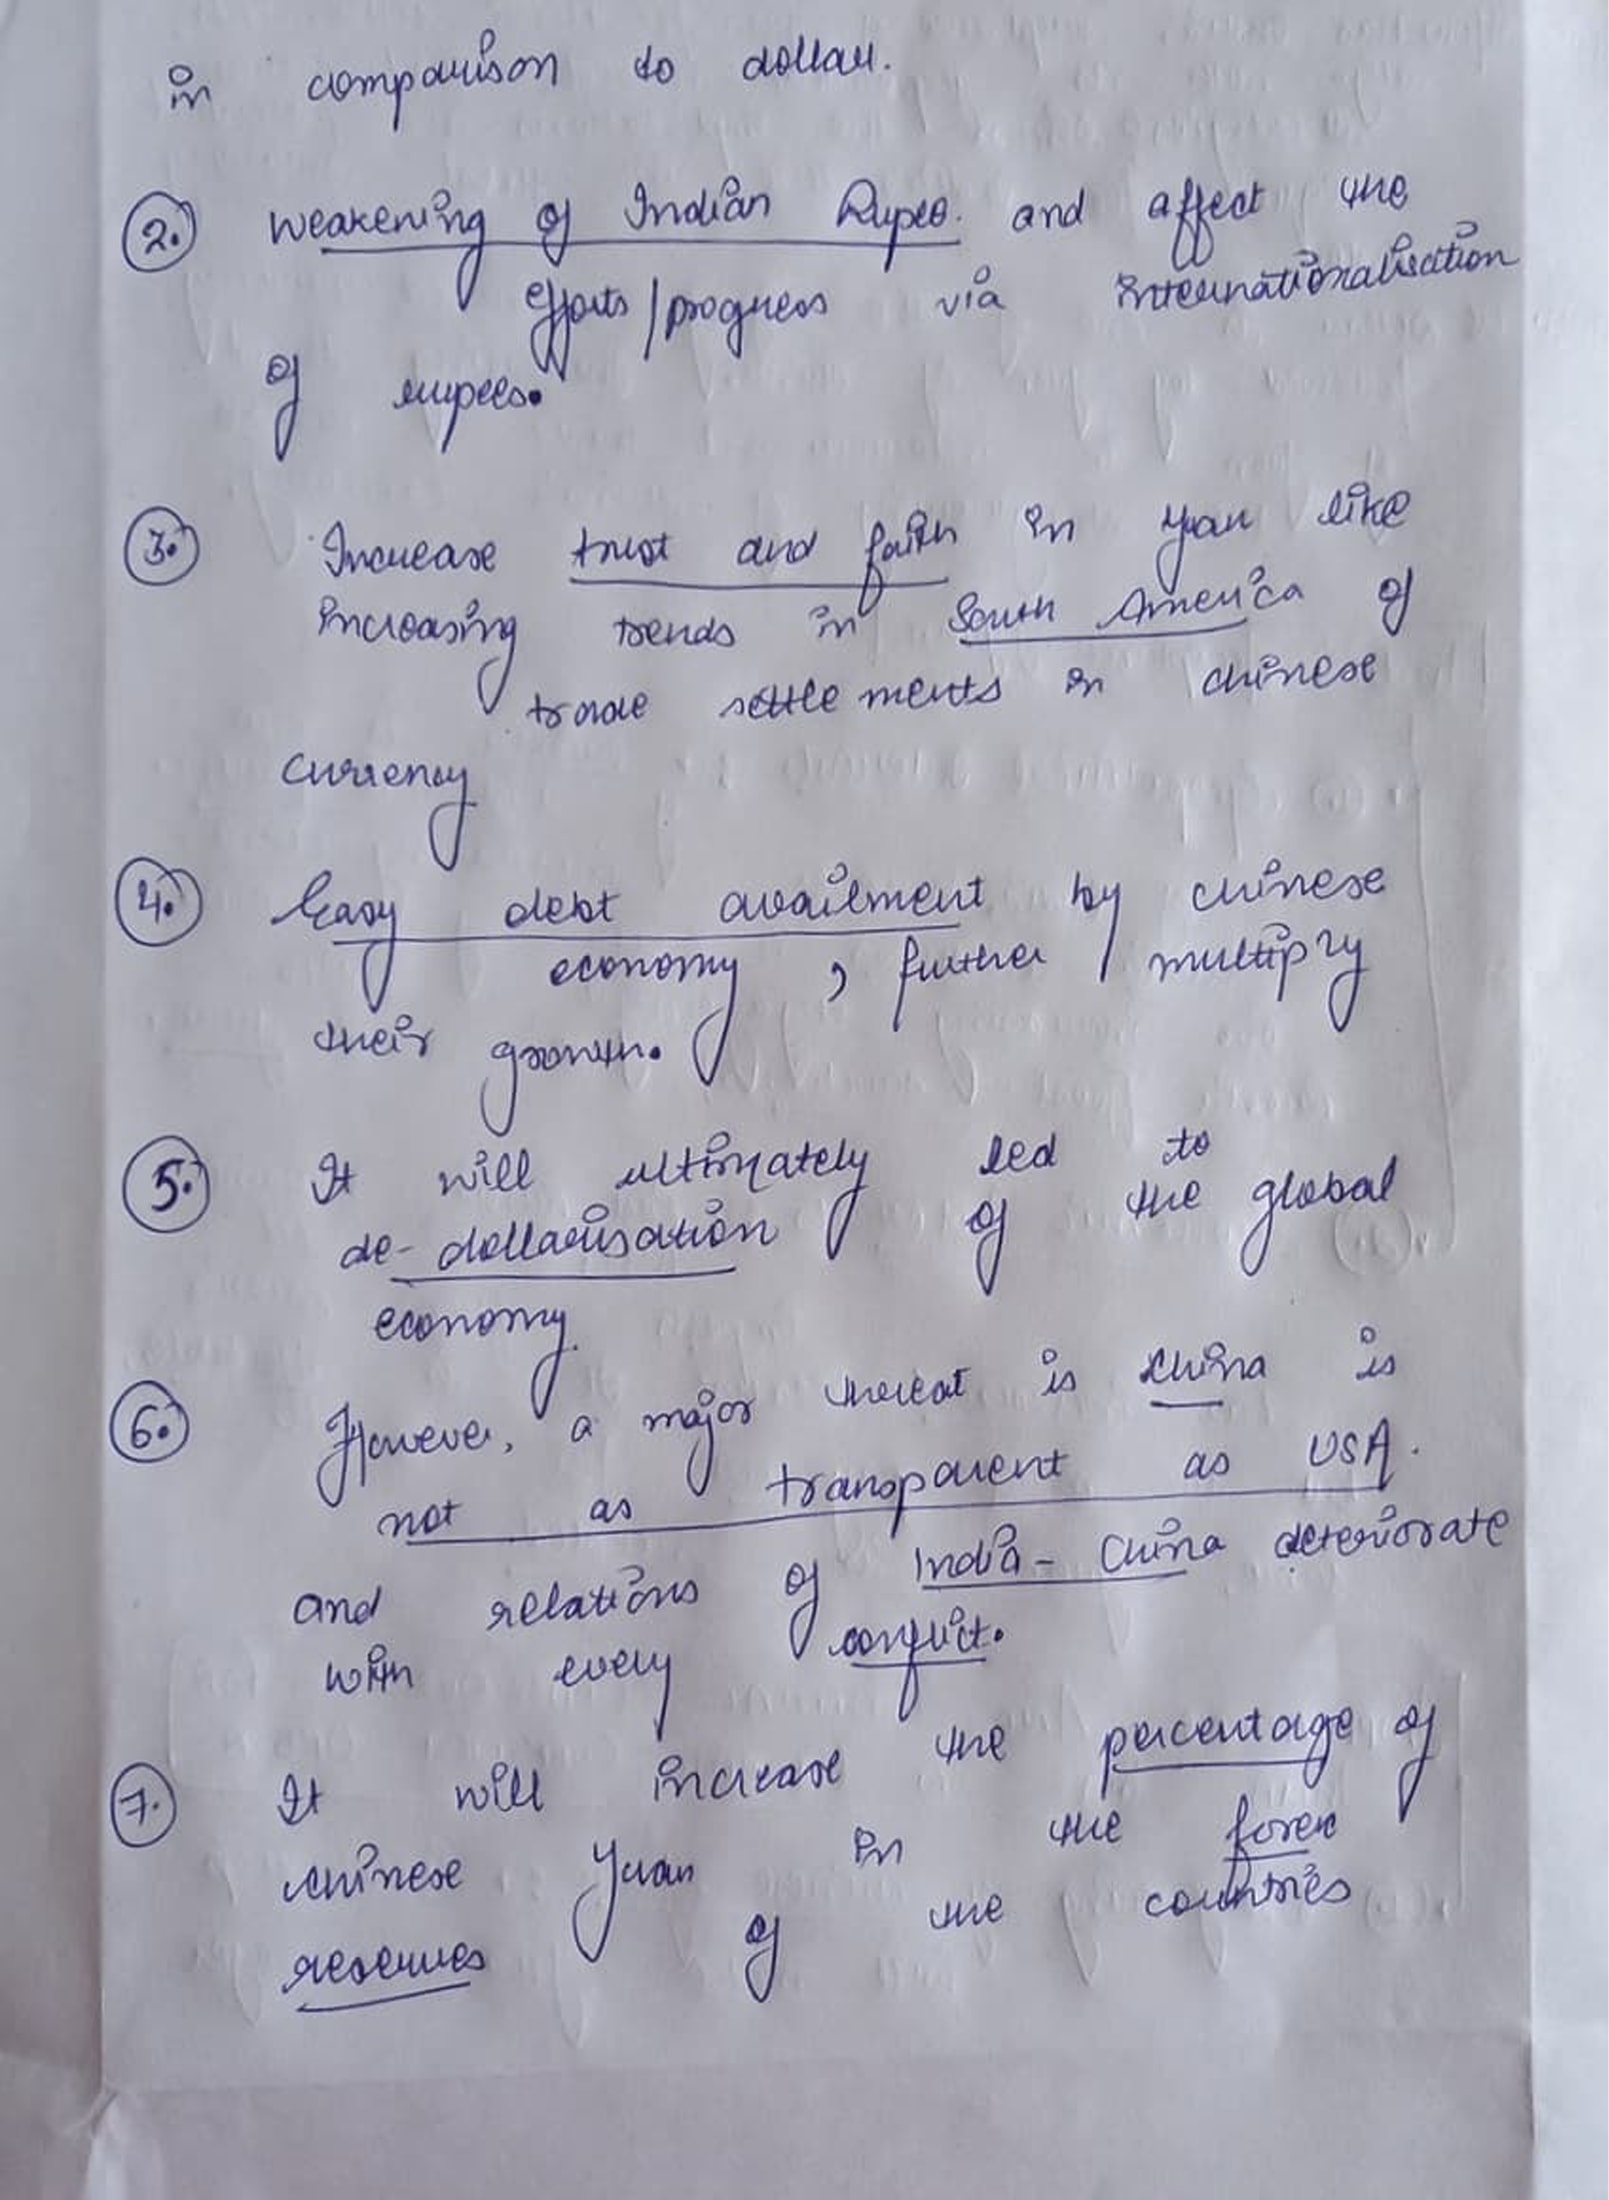 in comparison to dollar.
2. Weakening of Indian Rupee. and affect the
efforts/progress via internationalisation
of rupees.
3. Increase trust and faith in Yuan like
increasing trends in South America of
trade settlements in chinese
currency
4. Easy debt availment by chinese
economy, further multiply
their growth.
5. It will ultimately led to
de-dollarisation of the global
economy.
6. However, a major threat is China is
not as transparent as USA.
and relations of India-China deteriorate
with every conflict.
7. It will increase the percentage of
chinese Yuan in the forex
reserves of the countries